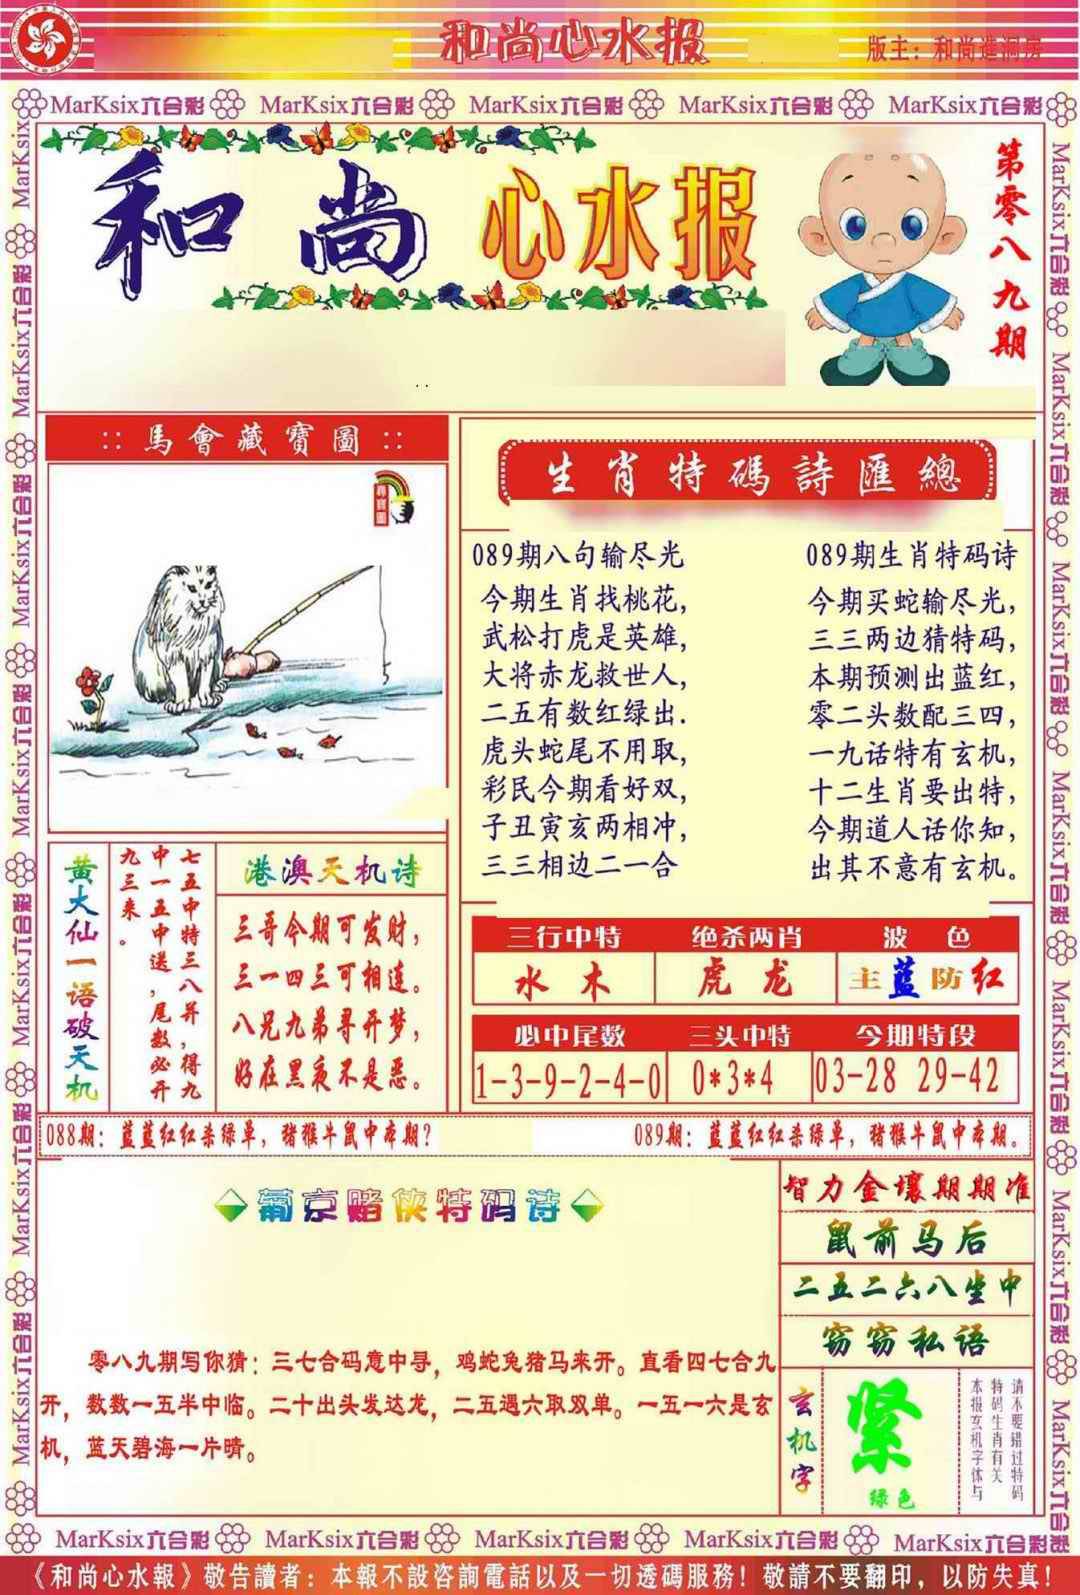 和尚心水报
版主：和尚進洞房
MarKsix六合彩 MarKsix六合彩 MarKsix六合彩 MarKsix六合彩 MarKsix六合彩
和尚心水报
第零八九期
::馬會藏寶圖::
尋寶圖
生肖特碼詩匯總
089期八句输尽光
今期生肖找桃花，
武松打虎是英雄，
大将赤龙救世人，
二五有数红绿出．
虎头蛇尾不用取，
彩民今期看好双，
子丑寅亥两相冲，
三三相边二一合
089期生肖特码诗
今期买蛇输尽光，
三三两边猜特码，
本期预测出蓝红，
零二头数配三四，
一九话特有玄机，
十二生肖要出特，
今期道人话你知，
出其不意有玄机。
黄大仙一语破天机
七五中特三八并，得九
中一五中送，尾数必开
九三来。
港澳天机诗
三哥今期可发财，
三一四三可相连。
八兄九弟寻开梦，
好在黑夜不是恶。
三行中特 绝杀两肖 波色
水木 虎龙 主蓝防红
必中尾数 三头中特 今期特段
1-3-9-2-4-0 0*3*4 03-28 29-42
088期：蓝蓝红红杀绿单，猪猴牛鼠中本期？
089期：蓝蓝红红杀绿单，猪猴牛鼠中本期。
葡京赌侠特码诗
零八九期写你猜：三七合码意中寻，鸡蛇兔猪马来开。直看四七合九
开，数数一五半中临。二十出头发达龙，二五遇六取双单。一五一六是玄
机，蓝天碧海一片晴。
智力金壤期期准
鼠前马后
二五二六八坐中
窃窃私语
玄机字
紧
绿色
请不要错过特码
特码生肖有关
本报玄机字体与
MarKsix六合彩 MarKsix六合彩 MarKsix六合彩 MarKsix六合彩 MarKsix六合彩
《和尚心水報》敬告讀者：本報不設咨詢電話以及一切透碼服務！敬請不要翻印，以防失真！